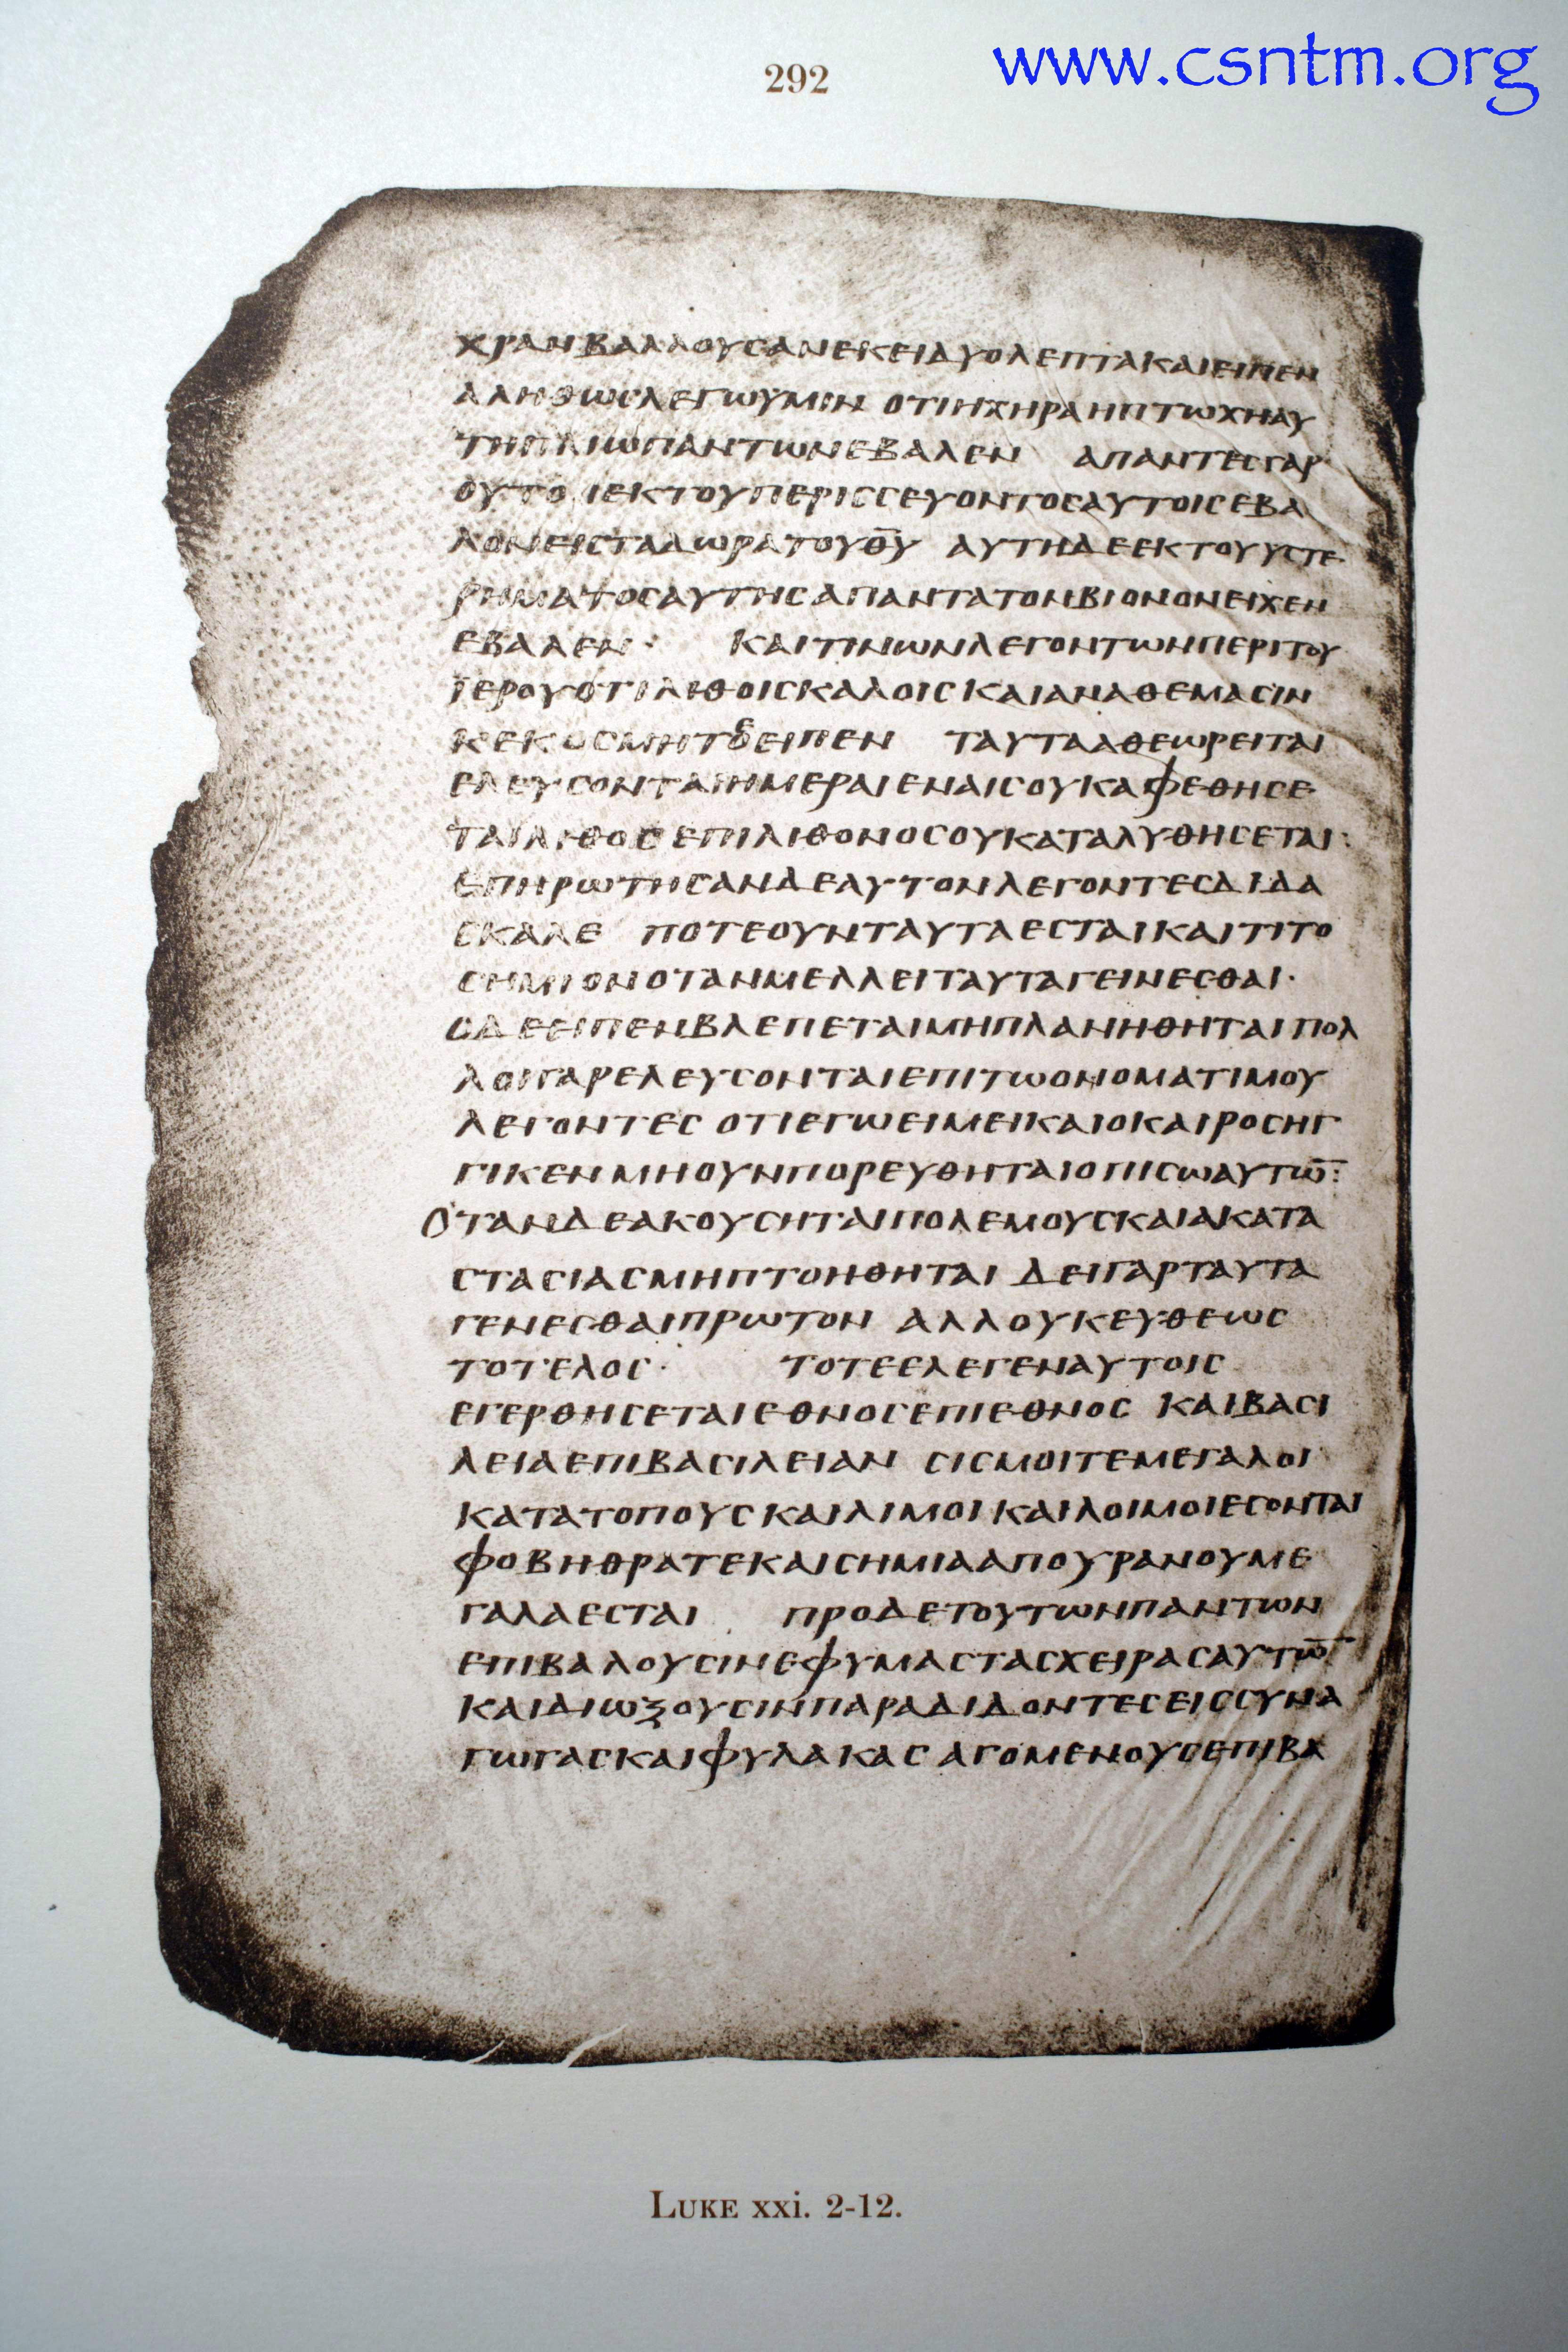 292
www.csntm.org
ΧΡΑΝΒΑΛΛΟΥϹΑΝΕΚΕΙΔΥΟΛΕΠΤΑΚΑΙΕΙΠΕΝ
ΑΛΗΘΩϹΛΕΓΩΥΜΙΝ ΟΤΙΗΧΗΡΑΗΠΤΩΧΗΑΥ
ΤΗΠΛΙΩΠΑΝΤΩΝΕΒΑΛΕΝ ΑΠΑΝΤΕϹΓΑΡ
ΟΥΤΟΙΕΚΤΟΥΠΕΡΙϹϹΕΥΟΝΤΟϹΑΥΤΟΙϹΕΒΑ
ΛΟΝΕΙϹΤΑΔΩΡΑΤΟΥΘ̅Υ̅ ΑΥΤΗΔΕΕΚΤΟΥΥϹΤΕ
ΡΗΜΑΤΟϹΑΥΤΗϹΑΠΑΝΤΑΤΟΝΒΙΟΝΟΝΕΙΧΕΝ
ΕΒΑΛΕΝ· ΚΑΙΤΙΝΩΝΛΕΓΟΝΤΩΝΠΕΡΙΤΟΥ
ΪΕΡΟΥΟΤΙΛΙΘΟΙϹΚΑΛΟΙϹΚΑΙΑΝΑΘΕΜΑϹΙΝ
ΕΙΠΕΝ ΤΑΥΤΑΑΘΕΩΡΕΙΤΑΙ
ΕΛΕΥϹΟΝΤΑΙΗΜΕΡΑΙΕΝΑΙϹΟΥΚΑΦΕΘΗϹΕ
ΤΑΙΛΙΘΟϹΕΠΙΛΙΘΟΝΟϹΟΥΚΑΤΑΛΥΘΗϹΕΤΑΙ·
ΕΠΗΡΩΤΗϹΑΝΔΕΑΥΤΟΝΛΕΓΟΝΤΕϹΔΙΔΑ
ϹΚΑΛΕ ΠΟΤΕΟΥΝΤΑΥΤΑΕϹΤΑΙΚΑΙΤΙΤΟ
ϹΗΜΙΟΝΟΤΑΝΜΕΛΛΕΙΤΑΥΤΑΓΕΙΝΕϹΘΑΙ·
ΟΔΕΕΙΠΕΝΒΛΕΠΕΤΑΙΜΗΠΛΑΝΗΘΗΤΑΙΠΟΛ
ΛΟΙΓΑΡΕΛΕΥϹΟΝΤΑΙΕΠΙΤΩΟΝΟΜΑΤΙΜΟΥ
ΛΕΓΟΝΤΕϹ ΟΤΙΕΓΩΕΙΜΕΙΚΑΙΟΚΑΙΡΟϹΗΓ
ΓΙΚΕΝΜΗΟΥΝΠΟΡΕΥΘΗΤΑΙΟΠΙϹΩΑΥΤΩ̅:
ΟΤΑΝΔΕΑΚΟΥϹΗΤΑΙΠΟΛΕΜΟΥϹΚΑΙΑΚΑΤΑ
ϹΤΑϹΙΑϹΜΗΠΤΟΗΘΗΤΑΙ ΔΕΙΓΑΡΤΑΥΤΑ
ΓΕΝΕϹΘΑΙΠΡΩΤΟΝ ΑΛΛΟΥΚΕΥΘΕΩϹ
ΤΟΤΕΛΟϹ· ΤΟΤΕΕΛΕΓΕΝΑΥΤΟΙϹ
ΕΓΕΡΘΗϹΕΤΑΙΕΘΝΟϹΕΠΙΕΘΝΟϹ ΚΑΙΒΑϹΙ
ΛΕΙΑΕΠΙΒΑϹΙΛΕΙΑΝ ϹΙϹΜΟΙΤΕΜΕΓΑΛΟΙ
ΚΑΤΑΤΟΠΟΥϹΚΑΙΛΙΜΟΙΚΑΙΛΟΙΜΟΙΕϹΟΝΤΑΙ
ΦΟΒΗΘΡΑΤΕΚΑΙϹΗΜΙΑΑΠΟΥΡΑΝΟΥΜΕ
ΓΑΛΑΕϹΤΑΙ ΠΡΟΔΕΤΟΥΤΩΝΠΑΝΤΩΝ
ΕΠΙΒΑΛΟΥϹΙΝΕΦΥΜΑϹΤΑϹΧΕΙΡΑϹΑΥΤΩ̅
ΚΑΙΔΙΩΞΟΥϹΙΝΠΑΡΑΔΙΔΟΝΤΕϹΕΙϹϹΥΝΑ
ΓΩΓΑϹΚΑΙΦΥΛΑΚΑϹ ΑΓΟΜΕΝΟΥϹΕΠΙΒΑ
LUKE xxi. 2-12.